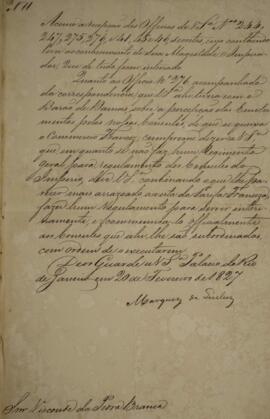 Accuso a recepção dos Officios de V. Sª Nos 244,
247, 275, 276, e 41, 45 e 46, secretos, cujo conteudo
levei ao conhecimento de Sua Magestade o Impera
dor, Que de tudo ficou inteirado.
Quanto ao Officio Nº 276 acompanhado
da correspondencia que V. Sª ahi teve com o
Barão de Damas sobre a percepção dos Emolu
mentos pelos nossos Consules de que se queixa
o Commercio Francez, cumpre-me dizer a V. Sª
que em quanto se não faz hum Regimento
Geral para regulamento dos Consules do
Imperio, deve V. Sª combinando o que lhe pa
recer mais arrazoado á vista da Tarifa Franceza,
fazer hum regulamento para servir interi
namente, e communica-lo officialmente
aos Consules que ahi lhe são subordinados,
com ordem de o executarem.
Deos Guarde a V. Sª Palacio do Rio
de Janeiro em 20 de Fevereiro de 1827
Marquez de Queluz
Snr Visconde da Pedra Branca